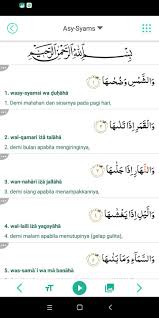 Asy-Syams
بِسْمِ اللَّهِ الرَّحْمَٰنِ الرَّحِيمِ
وَالشَّمْسِ وَضُحَىٰهَا
1. wasy-syamsi wa ḍuḥāhā
1. Demi matahari dan sinarnya pada pagi hari,
وَالْقَمَرِ إِذَا تَلَىٰهَا
2. wal-qamari iżā talāhā
2. demi bulan apabila mengiringinya,
وَالنَّهَارِ إِذَا جَلَّىٰهَا
3. wan-nahāri iżā jallāhā
3. demi siang apabila menampakkannya,
وَاللَّيْلِ إِذَا يَغْشَىٰهَا
4. wal-laili iżā yagsyāhā
4. demi malam apabila menutupinya (gelap gulita),
وَالسَّمَاءِ وَمَا بَنَىٰهَا
5. was-samā`i wa mā banāhā